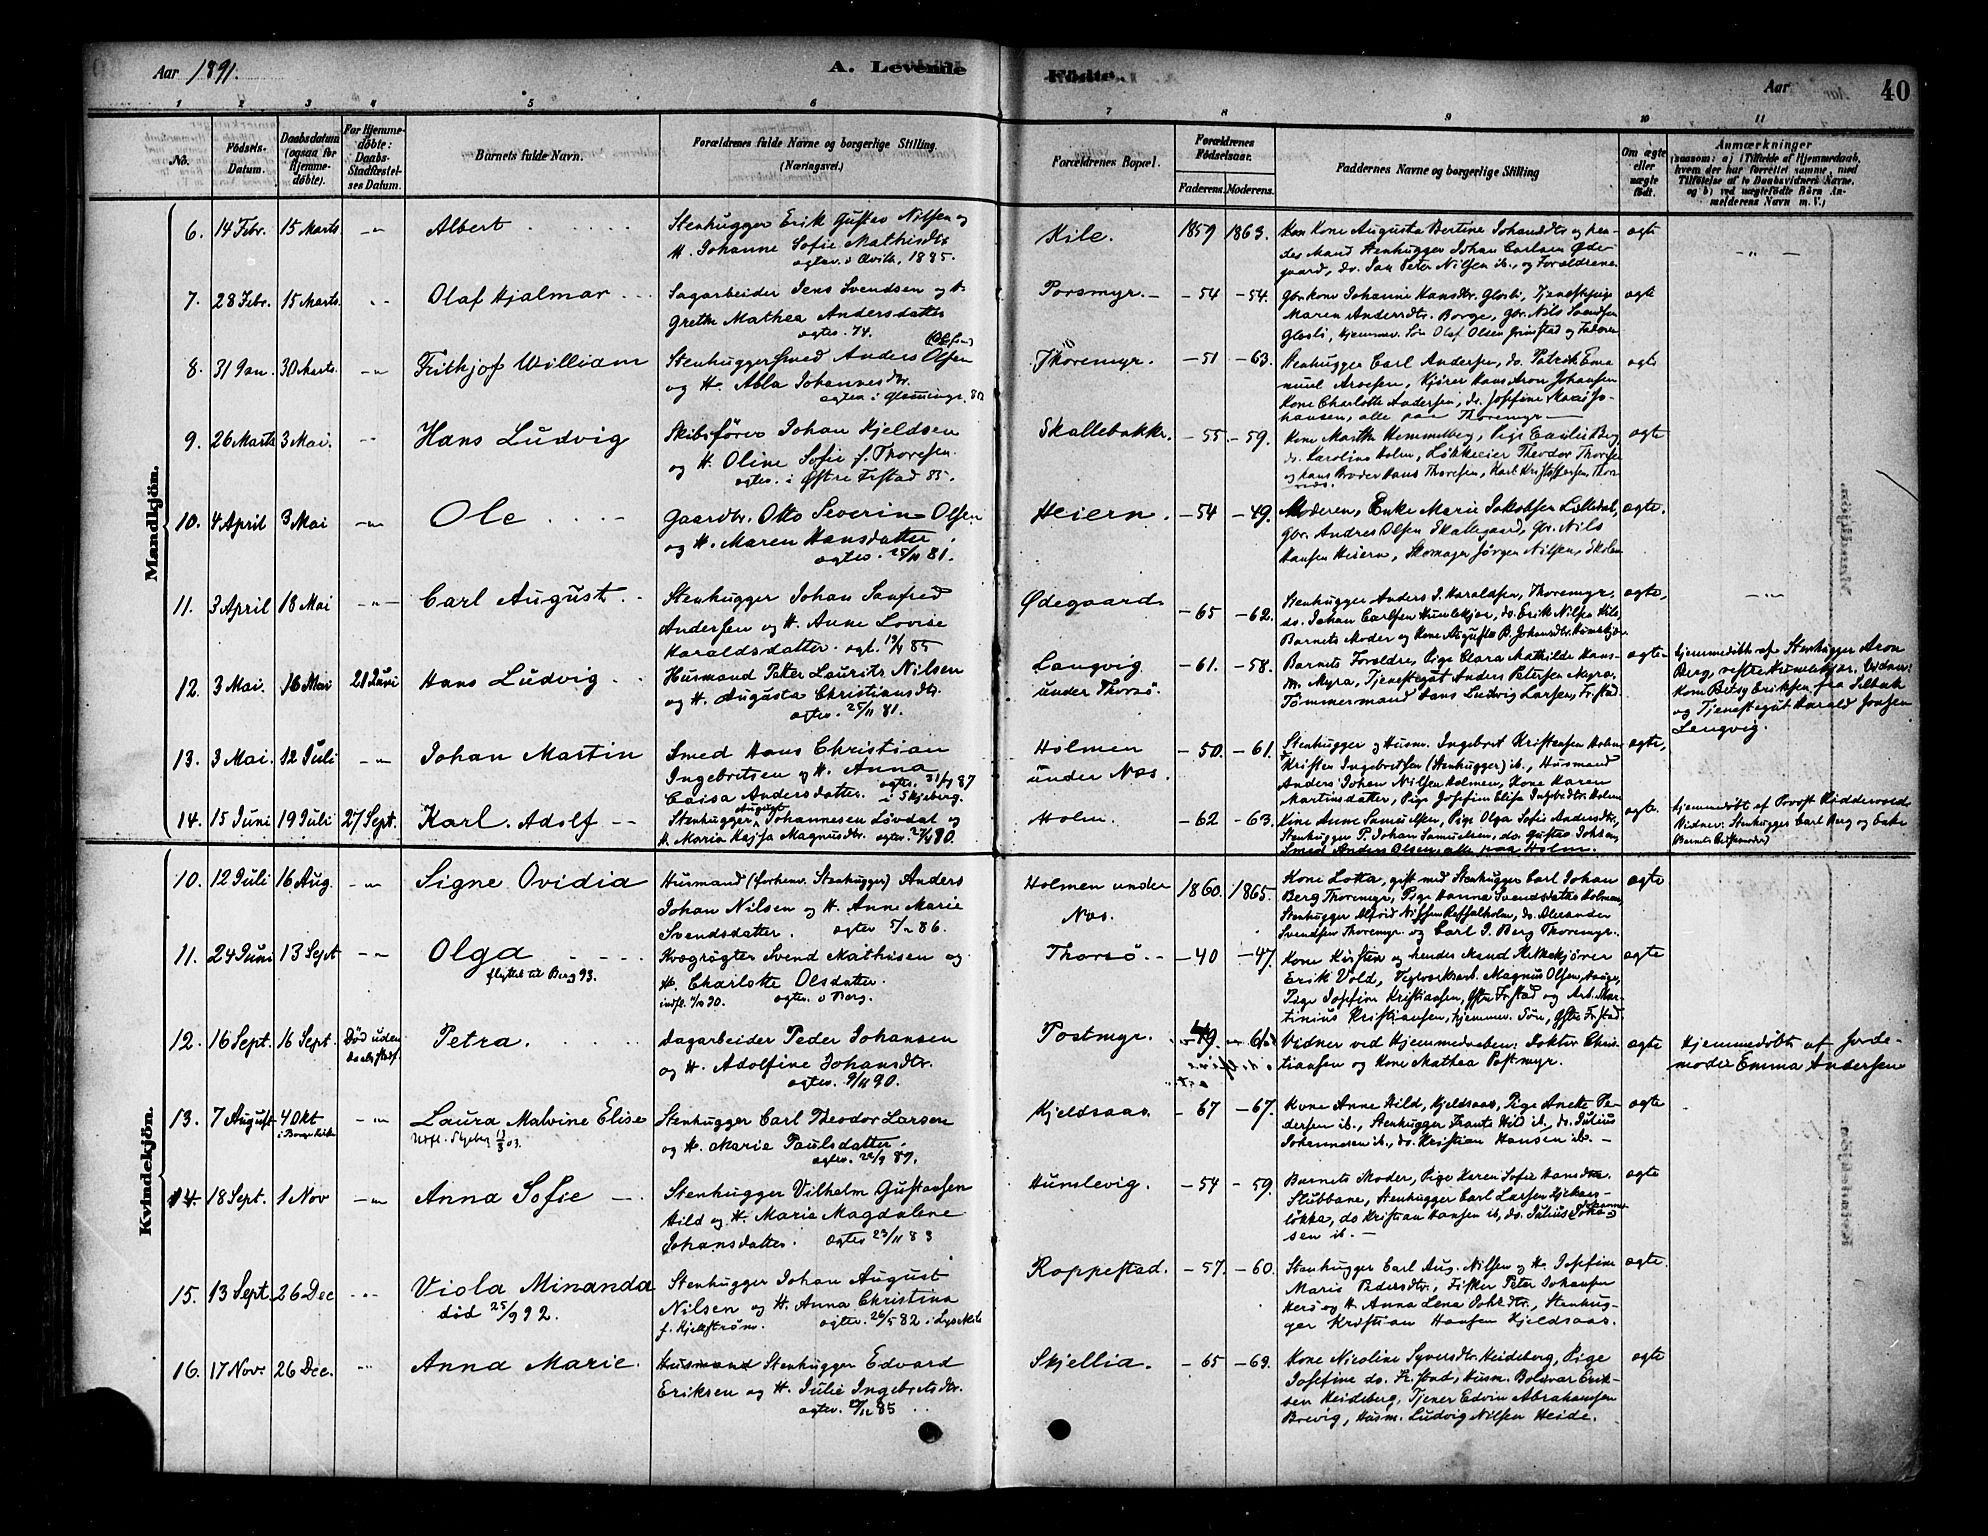 Aar 1891.
A. Levende
Fødte.
Aar
40
1 2 3 4 5 6 7 8 9 10 11
No.
Fødsels-
Datum.
Daabsdatum
(ogsaa for
Hjemme-
døbte).
For Hjemme-
døbte:
Daabs-
Stadfæstel-
ses Datum.
Barnets fulde Navn.
Forældrenes fulde Navne og borgerlige Stilling.
(Næringsvei.)
Forældrenes Bopæl.
Forældrenes
Fødselsaar.
Faderens. Moderens.
Faddernes Navne og borgerlige Stilling
Om ægte
eller
uægte
født.
Anmærkninger
(saasom: a) i Tilfælde af Hjemmedaab,
hvem der har forrettet samme, med
Tilføielse af to Daabsvidners Navne,
og b) ved uægtefødte Børn An-
melderens Navn m. V.)
Mandkjön.
6. 14 Febr. 15 Marts. Albert
Stenhugger Erik Gustav Nilsen og
H. Johanne Sofie Mathisdtr.
ægtev. i Qvik. 1885.
Kile. 1859 1863.
Kone Augusta Bertine Johansdtr og hen-
des Mand Stenhugger Johan Carlsen Øde-
gaard, do. Jan Peter Nilsen ib., og Forældrene.
ægte
7. 28 Febr. 15 Marts. Olaf Hjalmar
Sagarbeider Jens Svendsen og H.
Grethe Mathea Andersdatter
ægtev. 74.
Porsmyr. -54 -54.
Gbr. kone Johanne Hansdtr. Glosli, Tjenestepige
Maren Andersdtr. Borge, gbr. Nils Svendsen
Glosli, hjemmev. Søn Olaf Olsen Grimstad og Faderen
ægte
8. 31 Jan. 30 Marts. Frithjof William
Stenhuggersmed Anders Olsen
og H. Abla Johannesdtr.
Thoremyr. -51 -63.
Stenhugger Carl Andersen, do. Patrik Ema-
nuel Aroesen, Kjører Hans Aron Johansen
Kone Charlotte Andersen, do. Josefine Marie Jo-
hansen, alle paa Thoremyr
ægte
9. 26 Marts 3 Mai. Hans Ludvig
Skibsfører Johan Kjeldsen
og H. Oline Sofie f. Thoresen.
ægtev. i Østre Frstad 85.
Skallebakke. -55. -59.
Kone Marthe Hemmelberg, Pige Emilie Berg,
do. Karoline Holm, Løkkeeier Theodor Thoresen
og hans Broder Hans Thoresen, Karl Kristoffersen,
ægte
10. 4 April 3 Mai Ole
Gaardbr. Otto Severin Olsen
og H. Maren Hansdatter.
ægtev. 25/11 81.
Heiern. -54 -49.
Moderen, Enke Marie Jakobsen Lilledal,
gbr. Andreas Olsen Skallegaard, gbr. Nils
Hansen Heiern, Skomager Jørgen Nilsen, Skolen
ægte.
11. 3 April 18 Mai Carl August
Stenhugger Johan Sanfred
Andersen og H. Anne Lovise
Haraldsdatter. ægt. 85
Ødegaard. -65 -62.
Stenhugger Anders J. Haraldsen, Thoremyr,
do. Johan Carlsen Humlekjær, do. Erik Nilsen Kile,
Barnets Moder og Kone Augusta B. Johansdtr. Humlekjær
ægte,
12. 3 Mai. 16 Mai 21 Juni Hans Ludvig
Husmand Peter Laurits Nilsen
og H. Augusta Christiansdtr.
ægtev. 25/11 81.
Langvig
under Thorsø. -61. -58.
Barnets Forældre, Pige Clara Mathilde Hans-
Myra, Tjenestegut Anders Petersen Myra,
Tømmermand Hans Ludvig Larsen, Frstad
ægte
Hjemmedøbt af Stenhugger Aron
Berg, vestre Humlekjær. Vidner:
Kone Betsy Eriksen fra Selbak
og Tjenestegut Harald Jonsen
Langvig.
13. 3 Mai. 12 Juli Johan Martin
Smed Hans Christian
Ingebritsen og H. Anna
Caisa Andersdatter. ægtev. 87
i Skjeberg.
Holmen
under Nes. -50. -61.
Stenhugger og Husm. Ingebret Kristensen Holme
Kristen Ingebretsen (Stenhugger) ib., Husmand
Anders Johan Nilsen Holmen, Kone Karen
Martinsdatter, Pige Josefine Elise Ingebrdtr. Holmen
ægte,
14. 15 Juni 19 Juli 27 Sept. Karl Adolf
Stenhugger August Johannesen Løvdal og
H. Maria Kajsa Magnusdtr. ægtev. 80.
Holm. -62 -63.
Kone Anne Samuelsen, Pige Olga Sofie Andersdtr,
Stenhugger P. Johan Samuelsen, do. Gustav Johsen,
Smed Anders Olsen, alle paa Holm.
ægte.
Hjemmedøbt af Provst Ridderwold
Vidner: Stenhugger Carl Berg og Enke
Kvindekjön.
10. 12 Juli 16 Aug. Signe Ovidia
Husmand (forhenv. Stenhugger) Anders
Johan Nilsen og H. Anne Marie
Svendsdatter. ægtev 86.
Holmen under
Nes. 1860. 1865.
Kone Lotta, gift med Stenhugger Carl Johan
Berg Thoremyr, Pige Hanna Svendsdatter Holmen,
Stenhugger Alfrid Nilsen Reffelholm, do. Alexander
Svendsen Thoremyr og Carl J. Berg Thoremyr.
ægte
11. 24 Juni 13 Sept Olga
flyttet til Berg 93.
Kvægrøgter Svend Mathisen og
H. Charlotte Olsdatter.
ægtev. i Berg.
Thorsø. -40 -47.
Kone Kirsten og hendes Mand Melkekjører
Erik Vold, Teglverksarb. Magnus Olsen, Hauge,
Pige Josefine Kristiansen, Østre Frstad og Arb. Mar-
tinius Kristiansen, hjemmev. Søn, Østre Frstad
ægte
12. 16 Sept. 16 Sept. Død uden
Petra.
Dagarbeider Peder Johansen
og H. Adolfine Johansdtr.
ægtev. 9/11 90.
Postmyr.
Vidner ved Hjemmedaaben: Doktor Chris-
tiansen og Kone Mathea Postmyr.
ægte
Hjemmedøbt af Jorde-
moder Emma Andersen
13. 7 August 4 Okt
i Borge Kirke
Laura Malvine Elise
Stenhugger Carl Theodor Larsen
og H. Marie Paulsdatter.
Kjeldsaas. -67 -67.
Kone Anne Hild, Kjeldsaas, Pige Anette Pe-
dersen ib., Stenhugger Frants Hild ib., do. Julius
Johannesen ib., do. Kristian Hansen ib.
ægte
14 18 Sept. 1 Nov Anna Sofie
Stenhugger Vilhelm Gustavsen
Hild og H. Marie Magdalene
Johansdatter. ægtev 23/11 83
Hunslevig. -54 -59.
Barnets Moder, Pige Karen Sofie Hansdtr.
Slubbane, Stenhugger Carl Larsen Kjekars-
løkka, do Kristian Hansen ib, do. Julius Johannes-
sen ib.
ægte
15. 13 Sept. 26 Dec Viola Minanda
død 25/9 92.
Stenhugger Johan August
Nilsen og H. Anna Christina
f. Kjellstrøm. ægtev. 26/5 82 i Lysekil
Roppestad. -57. -60.
Stenhugger Carl Aug. Nilsen og H. Josefine
Marie Pedersdtr., Fisker Peter Johansen
Herø og H. Anna Lena Johsdtr., Stenhug-
ger Kristian Hansen Kjeldsaas.
ægte.
16. 17 Nov. 26 Dec. Anna Marie.
Husmand Stenhugger Edvard
Eriksen og H. Julie Ingebretsdtr.
ægtev. 85
Skjellia. -65 -69.
Kone Nicoline Syversdtr. Heideberg, Pige
Josefine do. Frstad, Husm. Bolevar Erik-
sen Heideberg, Tjener Edvin Abrahamsen
Brevig, Husm. Ludvig Nilsen Heide.
ægte